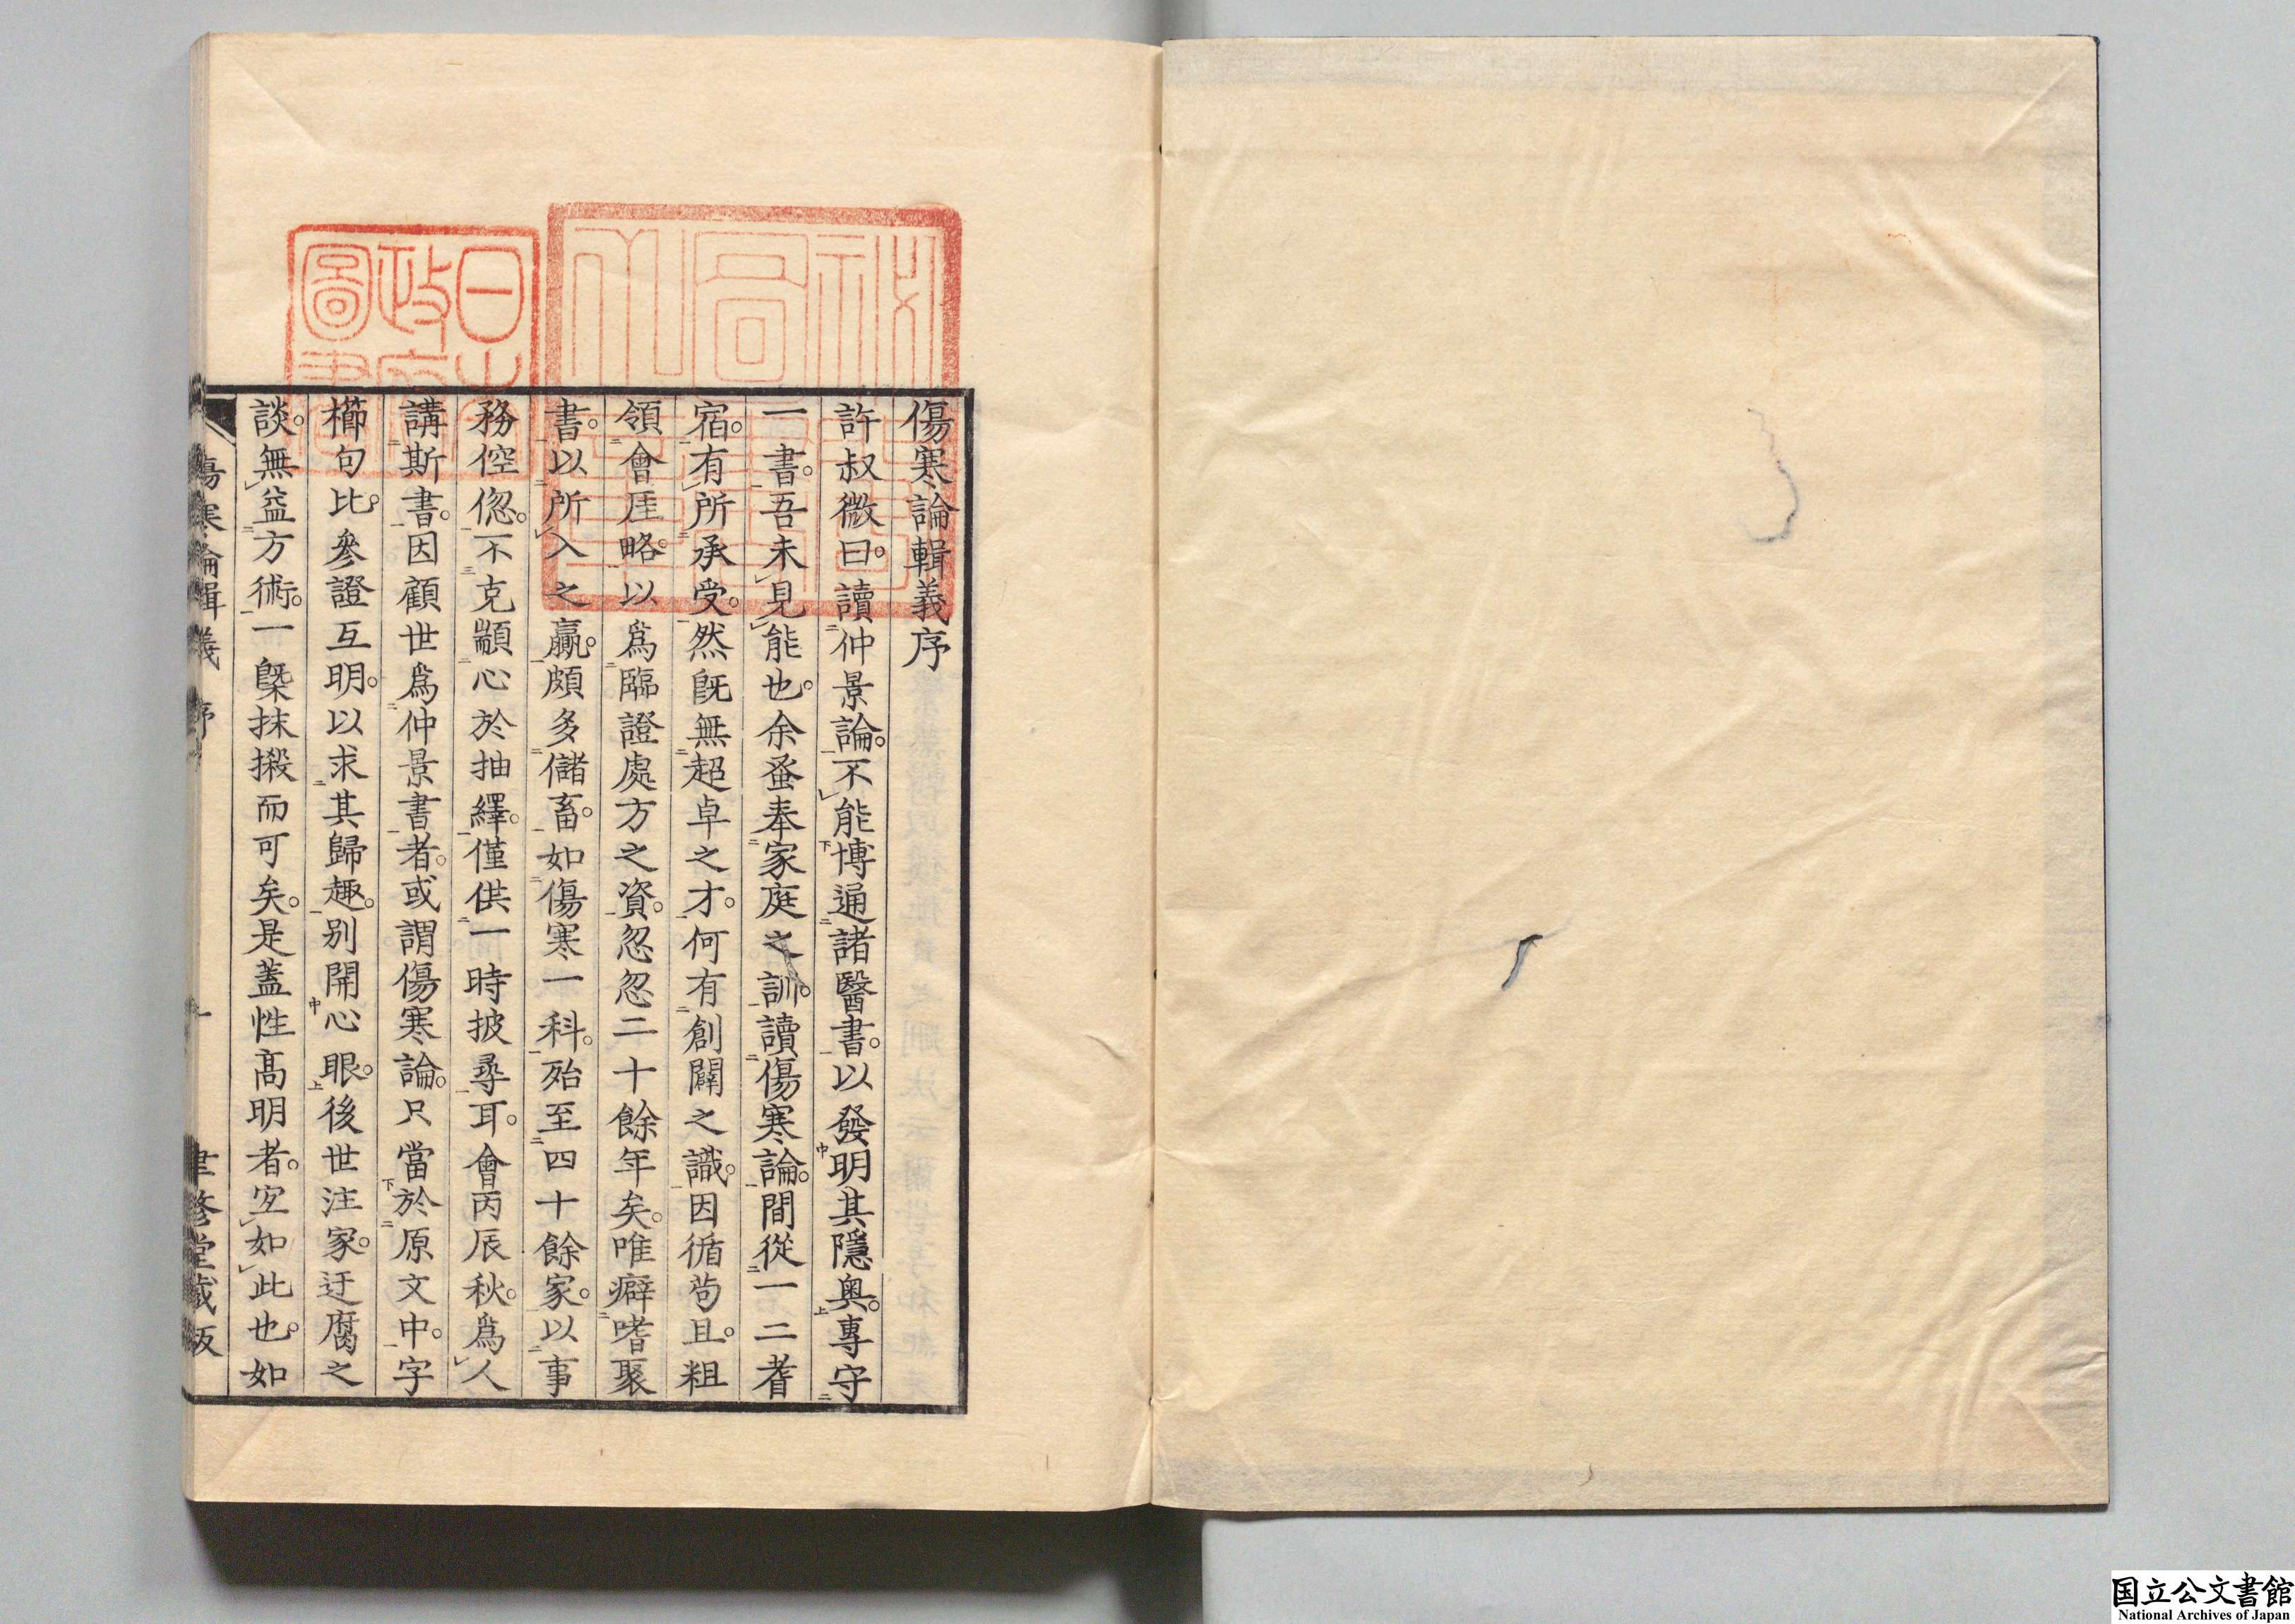 傷寒論輯義序
許叔微曰。讀仲景論。不能博通諸醫書。以發明其隱奧。專守
一書。吾未見能也。余蚤奉家庭之訓。讀傷寒論。間從一二耆
宿。有所承受。然既無超卓之才。何有創闢之識。因循苟且。粗
領會厓略。以爲臨證處方之資。忽忽二十餘年矣。唯癖嗜聚
書。以所入之贏。頗多儲畜。如傷寒一科。殆至四十餘家。以事
務倥偬。不克顓心於抽繹。僅供一時披尋耳。會丙辰秋。爲人
講斯書。因顧世爲仲景書者。或謂傷寒論。只當於原文中。字
櫛句比。參證互明。以求其歸趣。別開心眼。後世注家。迂腐之
談。無益方術。一槩抹摋而可矣。是蓋性高明者。宐如此也。如
傷寒論輯義 序 一 聿修堂藏版
日本政府圖書
国立公文書館
National Archives of Japan